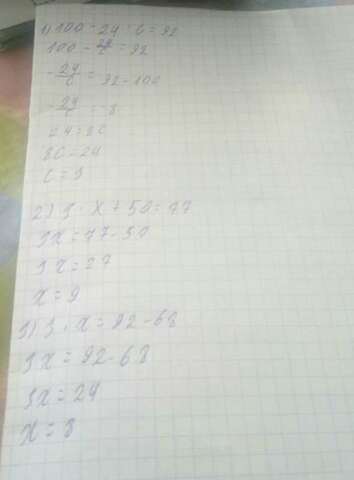 1) 100 - 24 : c = 92
100 - 24/c = 92
- 24/c = 92 - 100
- 24/c = -8
24 = 8c
8c = 24
c = 3
2) 3 · x + 50 = 77
3x = 77 - 50
3x = 27
x = 9
3) 3 · x = 92 - 68
3x = 92 - 68
3x = 24
x = 8